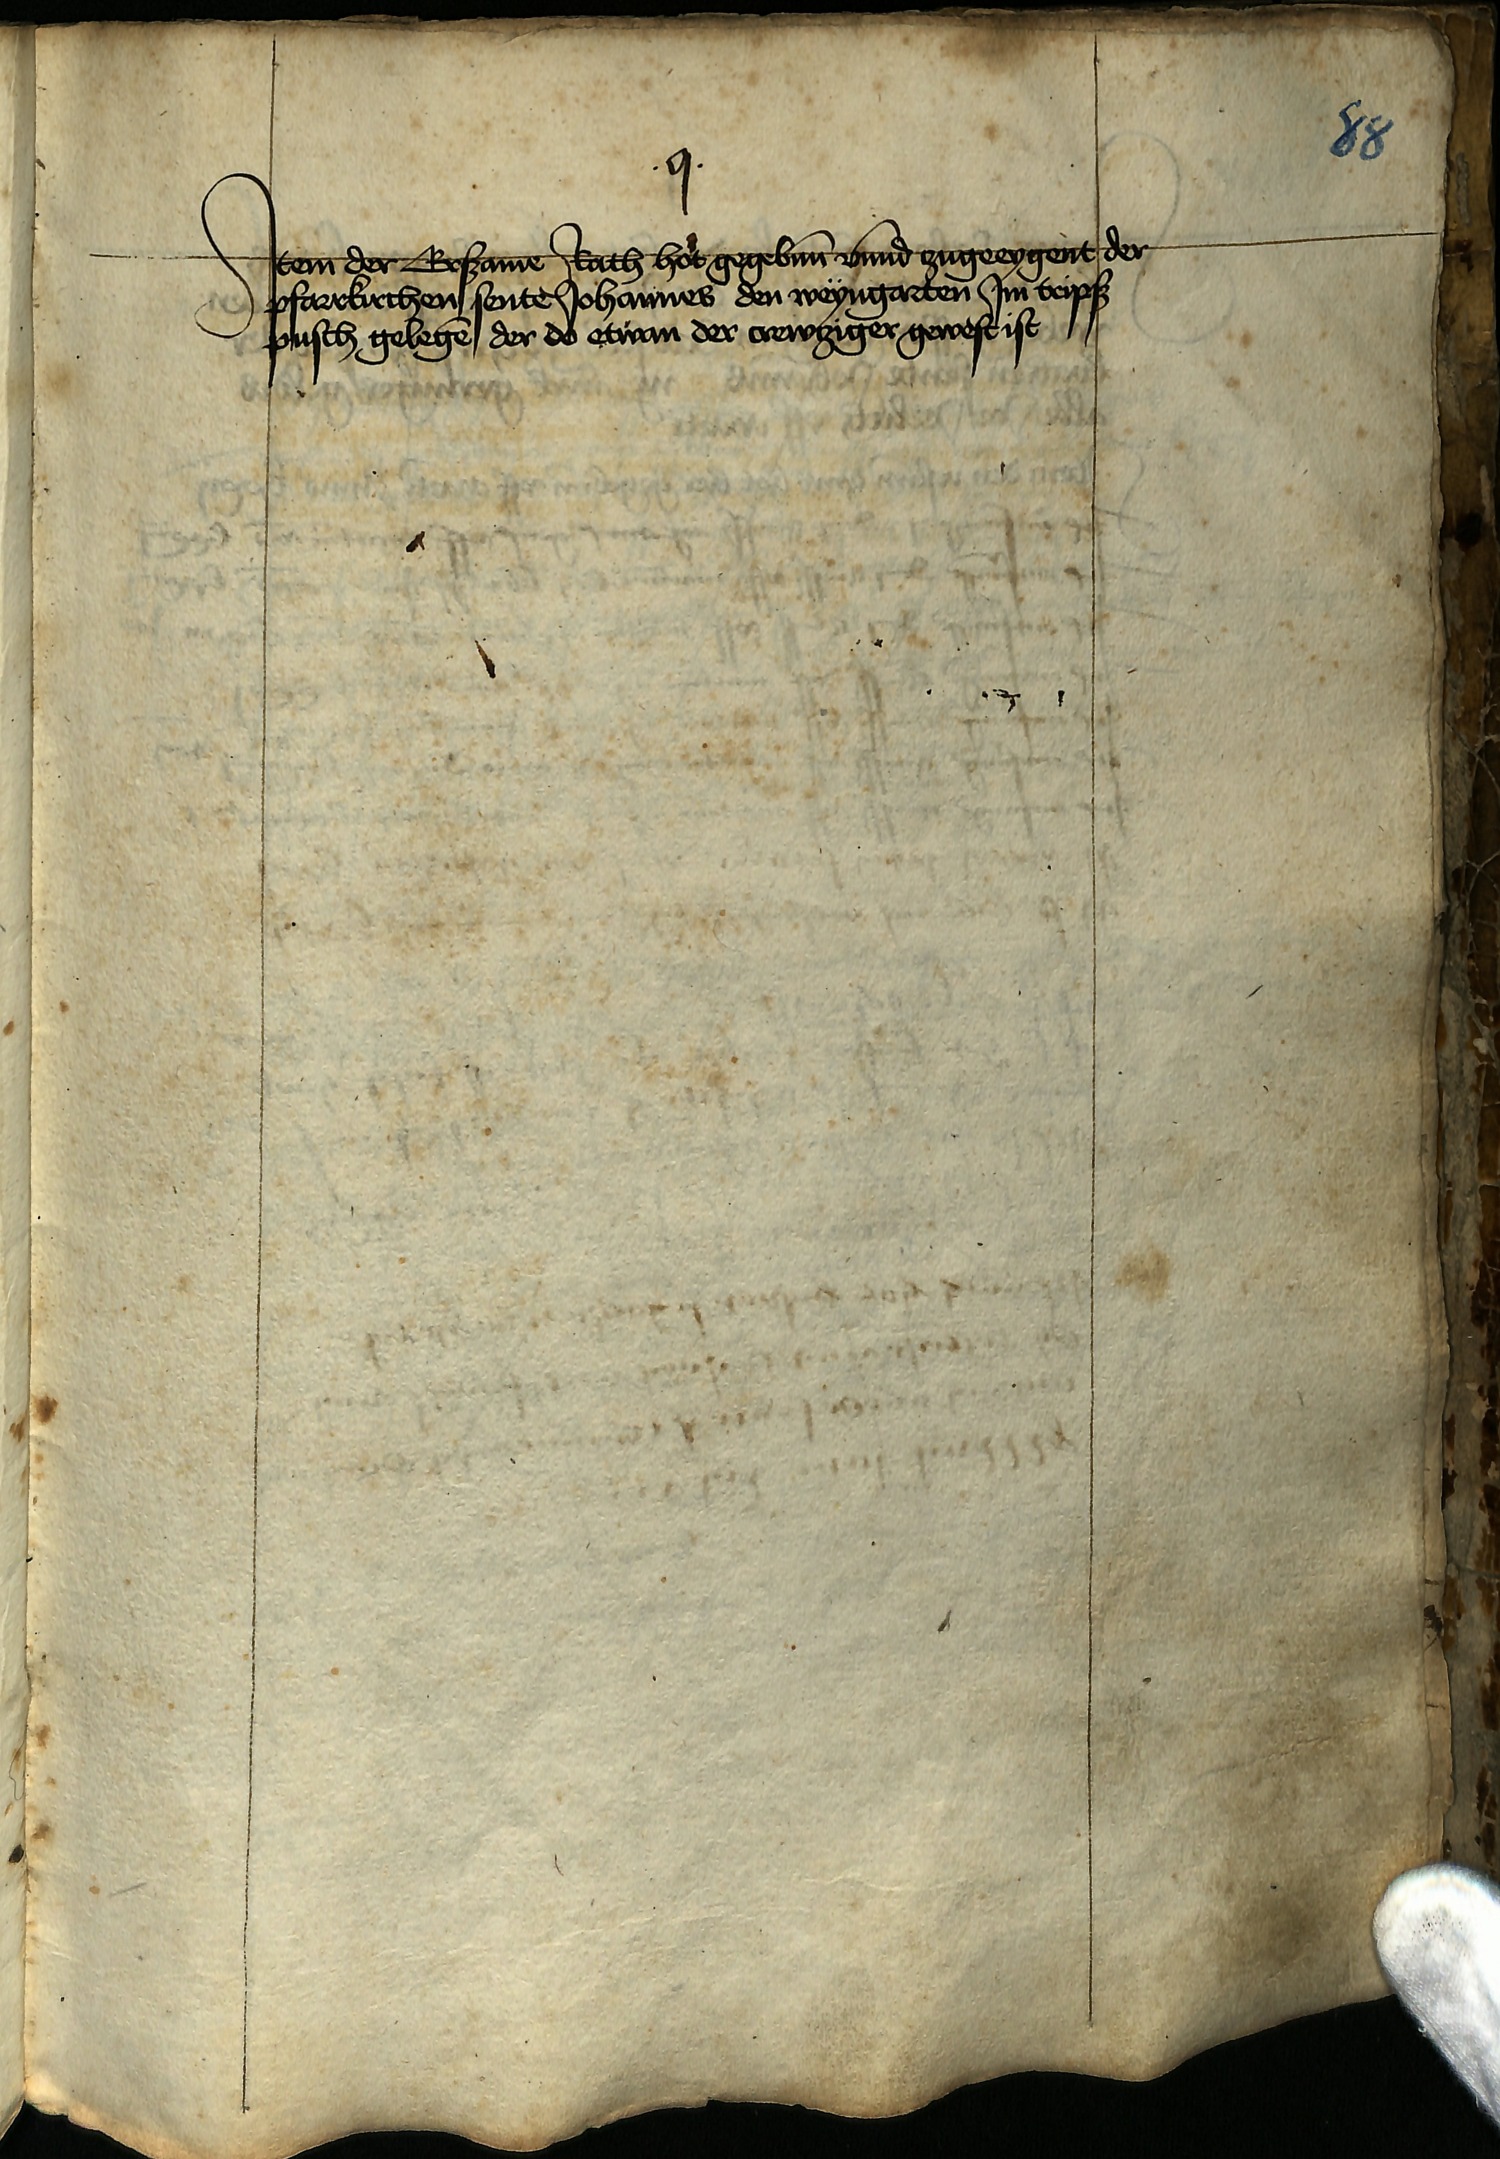 88
.9.
Item der Ersame Rath hot gegebnn vnnd zugeeygent der
pfarrkirchen sente Johannes den weyngarten Im tripsz
pusch gelegen der do etwan der crewtziger gewest ist